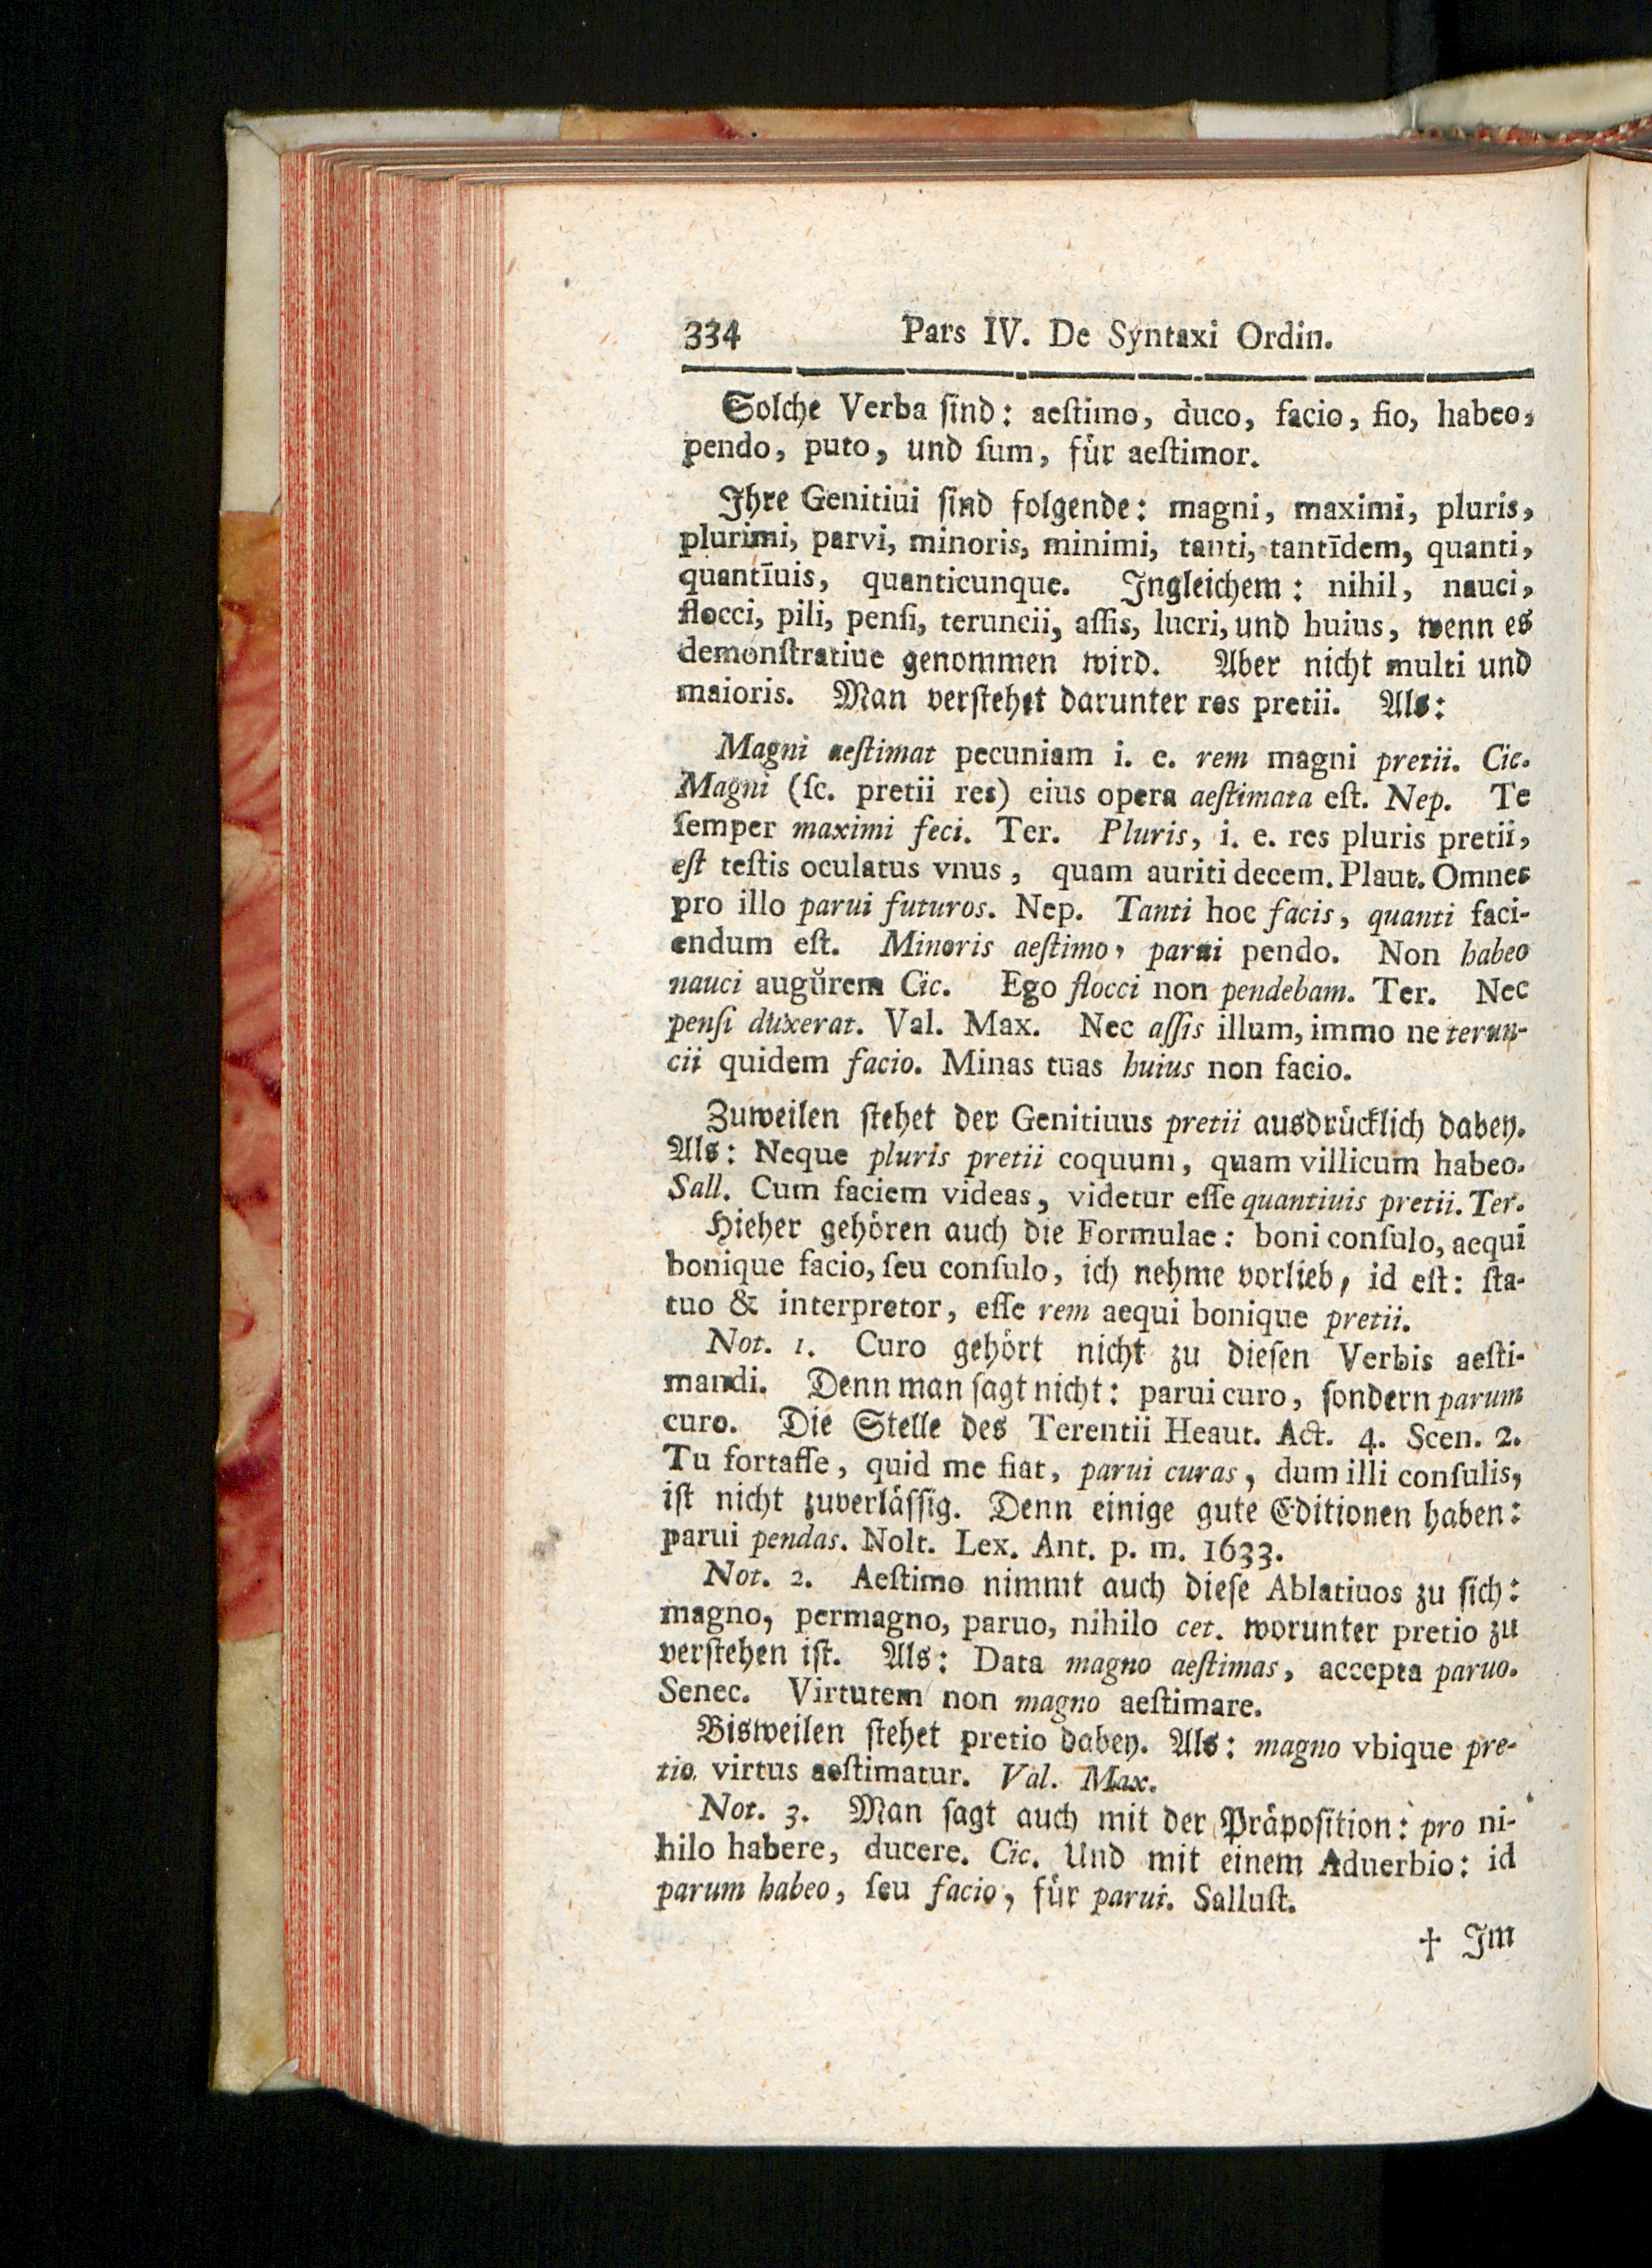 334 Pars IV. De Syntaxi Ordin.
Solche Verba ſind: aeſtimo, duco, facio, fio, habeo,
pendo, puto, und ſum, für aeſtimor.
Ihre Genitiui ſind folgende: magni, maximi, pluris,
plurimi, parvi, minoris, minimi, tanti, tantīdem, quanti,
quantīuis, quanticunque. Ingleichem: nihil, nauci,
flocci, pili, penſi, teruncii, aſſis, lucri, und huius, wenn es
demonſtratiue genommen wird. Aber nicht multi und
maioris. Man verſtehet darunter res pretii. Als:
Magni aeſtimat pecuniam i. e. rem magni pretii. Cic.
Magni (ſc. pretii res) eius opera aeſtimata eſt. Nep. Te
ſemper maximi feci. Ter. Pluris, i. e. res pluris pretii,
eſt teſtis oculatus vnus, quam auriti decem. Plaut. Omnes
pro illo parui futuros. Nep. Tanti hoc facis, quanti faci-
endum eſt. Minoris aeſtimo, parui pendo. Non habeo
nauci augŭrem Cic. Ego flocci non pendebam. Ter. Nec
penſi duxerat. Val. Max. Nec aſſis illum, immo ne terun-
cii quidem facio. Minas tuas huius non facio.
Zuweilen ſtehet der Genitiuus pretii ausdrücklich dabey.
Als: Neque pluris pretii coquum, quam villicum habeo.
Sall. Cum faciem videas, videtur eſſe quantiuis pretii. Ter.
Hieher gehören auch die Formulae: boni conſulo, aequi
bonique facio, ſeu conſulo, ich nehme vorlieb, id eſt: ſta-
tuo & interpretor, eſſe rem aequi bonique pretii.
Not. 1. Curo gehört nicht zu dieſen Verbis aeſti-
mandi. Denn man ſagt nicht: parui curo, ſondern parum
curo. Die Stelle des Terentii Heaut. Act. 4. Scen. 2.
Tu fortaſſe, quid me fiat, parui curas, dum illi conſulis,
iſt nicht zuverläſſig. Denn einige gute Editionen haben:
parui pendas. Nolt. Lex. Ant. p. m. 1633.
Not. 2. Aeſtimo nimmt auch dieſe Ablatiuos zu ſich:
magno, permagno, paruo, nihilo cet. worunter pretio zu
verſtehen iſt. Als: Data magno aeſtimas, accepta paruo.
Senec. Virtutem non magno aeſtimare.
Bisweilen ſtehet pretio dabey. Als: magno vbique pre-
tio virtus aeſtimatur. Val. Max.
Not. 3. Man ſagt auch mit der Präpoſition: pro ni-
hilo habere, ducere. Cic. Und mit einem Aduerbio: id
parum habeo, ſeu facio, für parui. Salluſt.
† Im